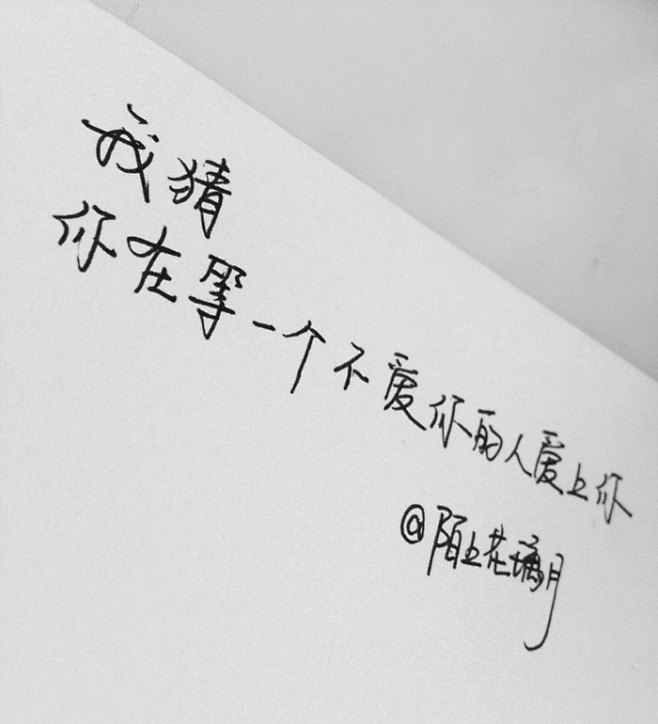 我猜
你在等一个不爱你的人爱上你
@陌上花璃月